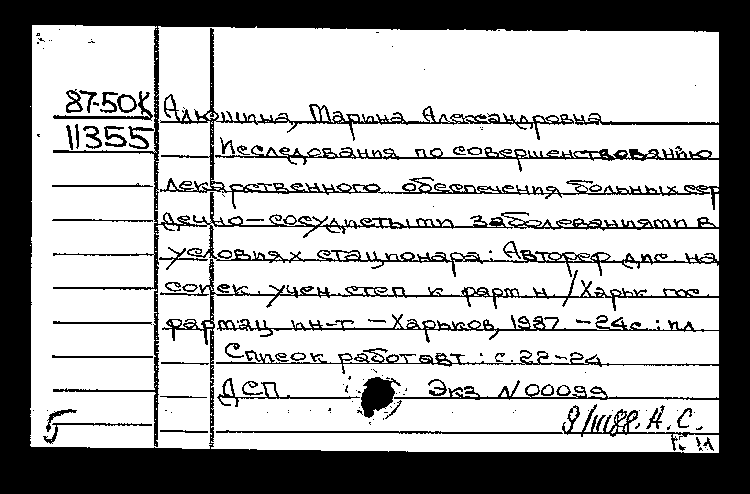 87-50К Алюшина, Марина Александровна
11355 Исследования по совершенствованию
лекарственного обеспечения больных сер
дечно-сосудистыми заболеваниями в
условиях стационара: Автореф дис на
соиск. учен степ к фарм н. / Харьк гос.
фармац ин-т - Харьков, 1987. - 24с.: ил.
Список работ авт.: с. 22-24
ДСП. Экз N 00099
9/III 88. А. С.
5